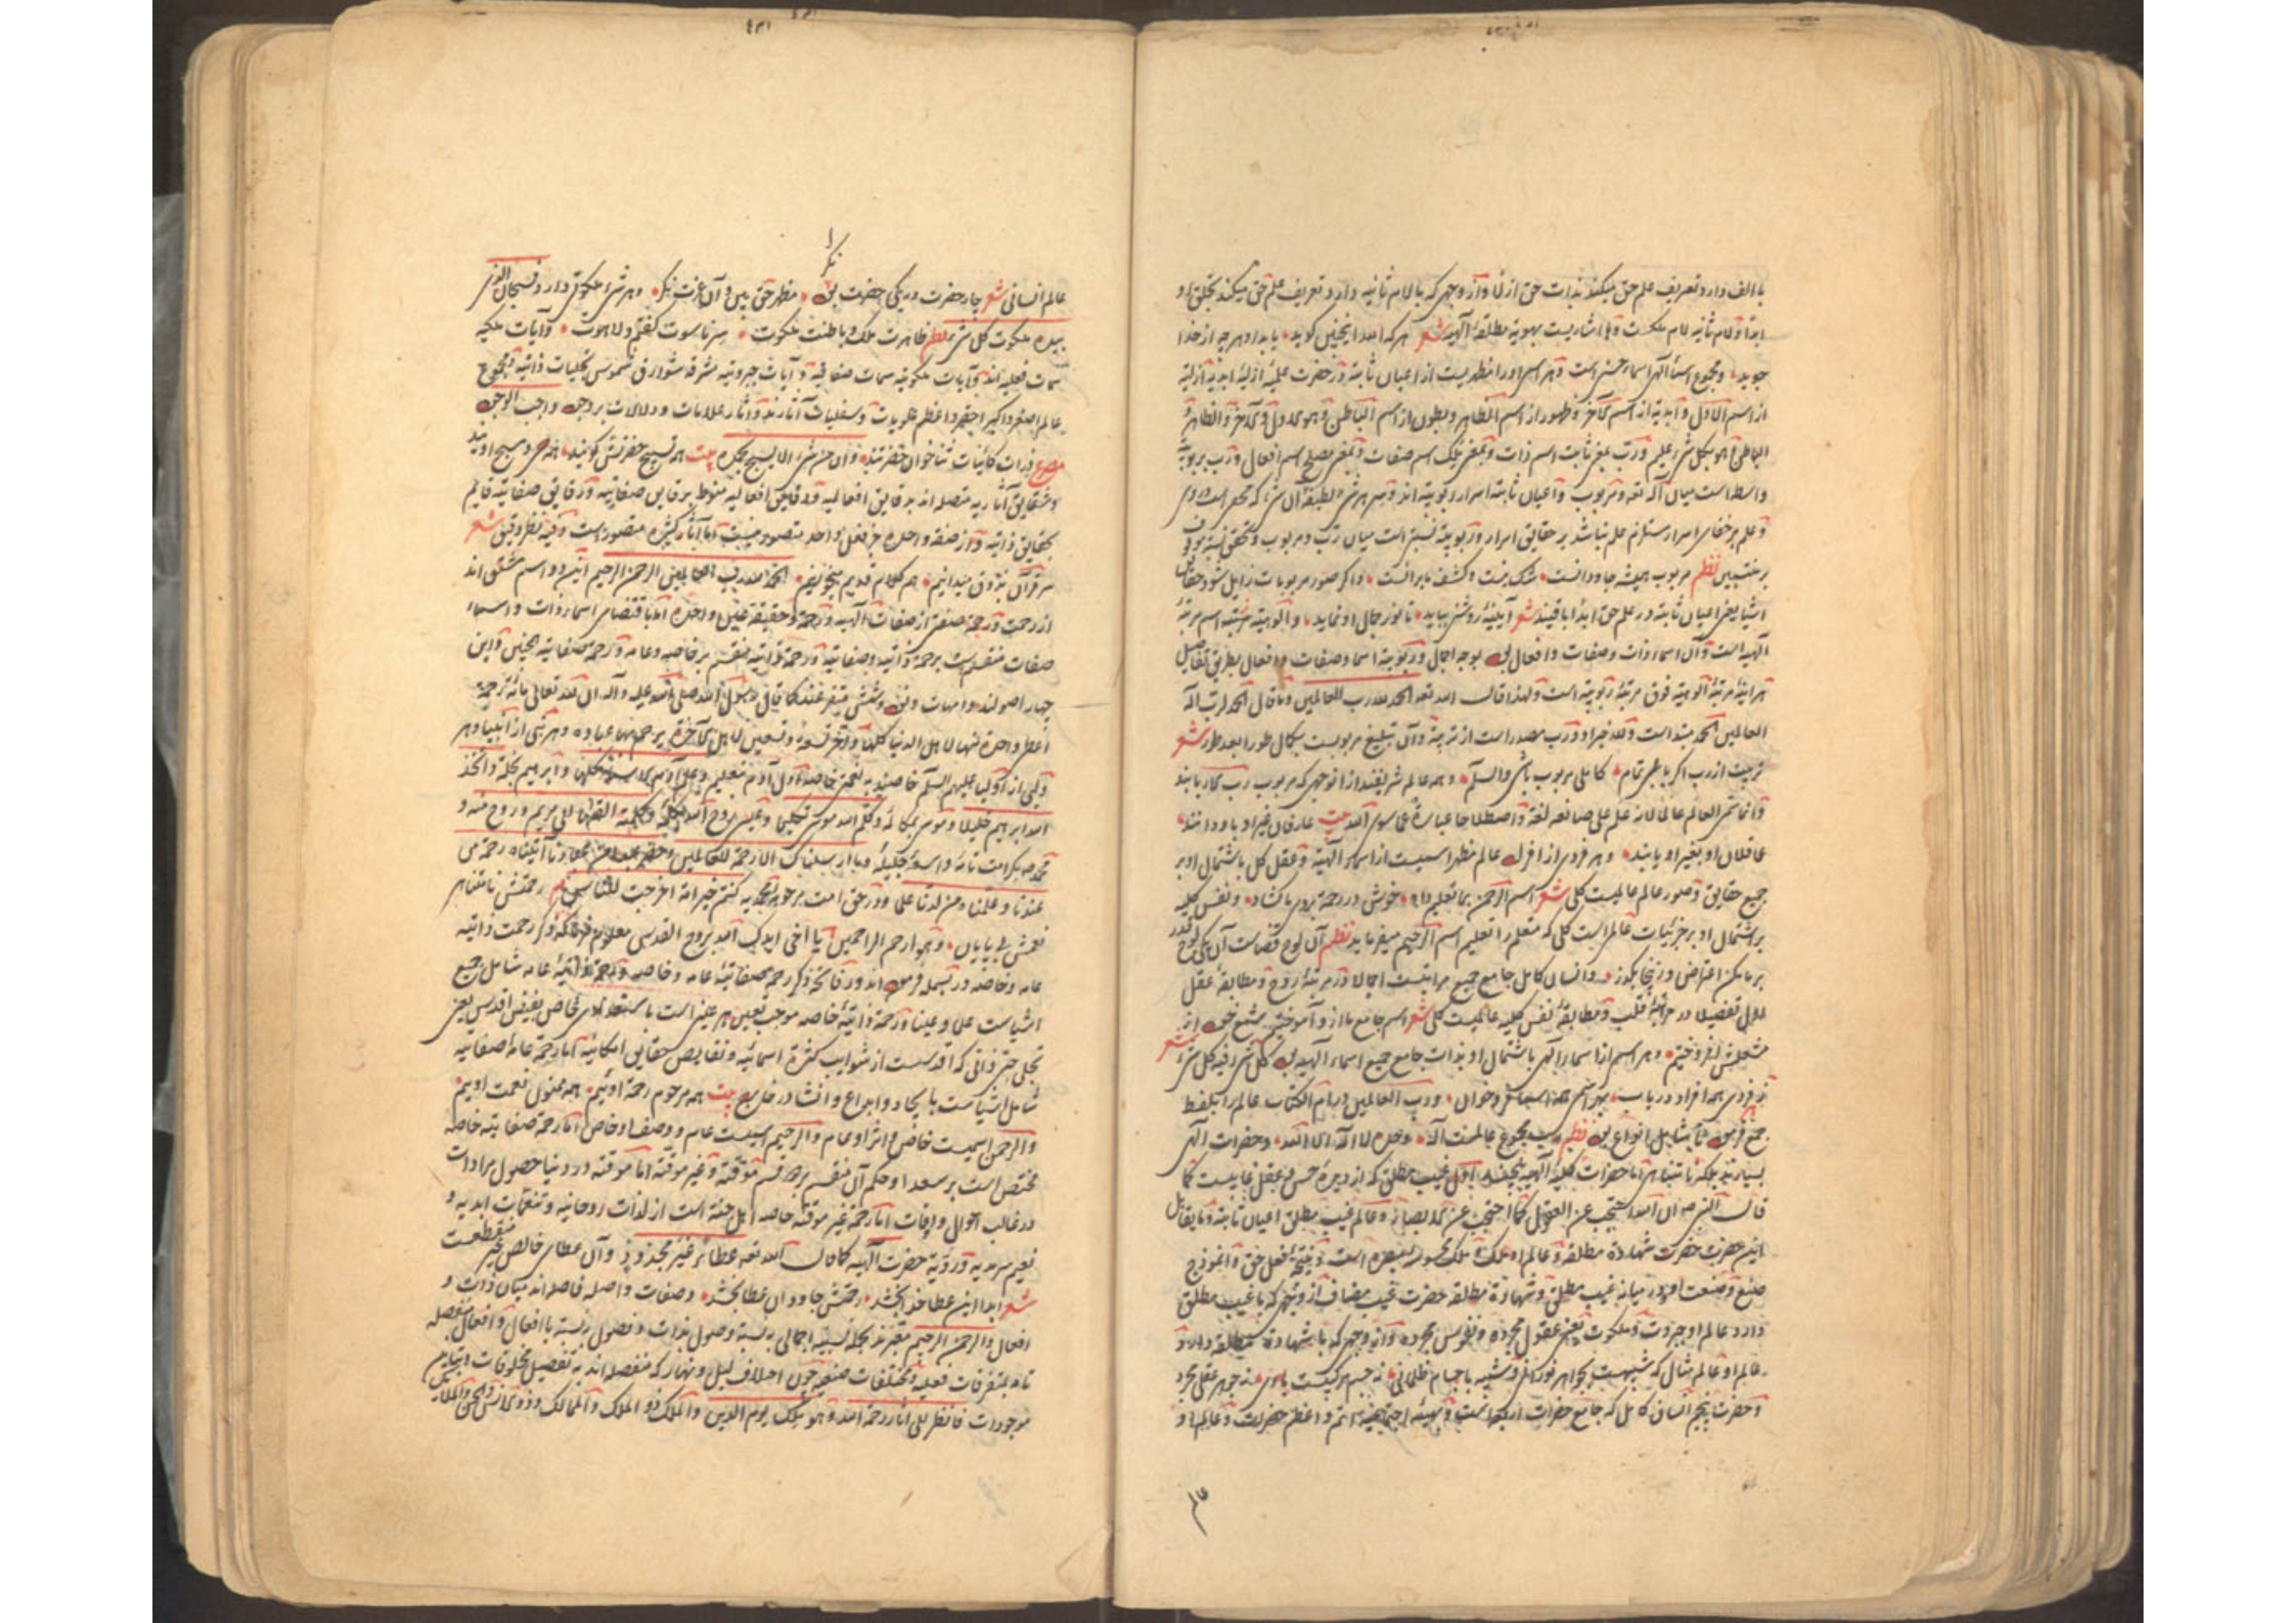 با الف دارد تعریف علم حق میکند بذات حق ازلا و از وجهی که با لام ثانیه دارد تعریف علم حق میکند بتجلی او
ابدا و لام ثانیه لام ملکست و ها اشاریست بهویة مطلقهٔ الهیه شعر هر که الله اینچنین کوید یابد او هرچه از خدا
جوید و مجموع اسماء الهی اسماء حسنی است و هر اسمی او را مظهریست از اعیان ثابته در حضرت علمیه ازلیة ابدیة ازلیة
از اسم الاول و ابدیة از اسم الآخر و ظهور از اسم الظاهر و بطون از اسم الباطن و هو الاول و الآخر و الظاهر و
الباطن و هو بکل شیء علیم و رب بمعنی ثابت اسم ذات و بمعنی ملک اسم صفات و بمعنی مصلح اسم افعال و رب بربوبیة
واسطه است میان اله تعه و مربوب و اعیان ثابته اسرار ربوبیته اند و سر هر شیء لطیفهٔ آن شیء که مخفی است در وی
و علم بر خفای اسرار مستلزم علم نباشد بر حقایق اسرار و ربوبیة نسبتی است میان رب و مربوب و تحقق نسبة موقوف
بر منتسبین نظم مربوب همیشه جاودانست شک نیست و کشف ما برانست و اکر صور مربوبات زایل شود حقایق
اشیا یعنی اعیان ثابته در علم حق ابدا باقیند شعر آیینهٔ روشنی بیابد تا نور جمال او نماید و الوهیة مرتبهٔ اسم مرتبهٔ
الهیه است و آن اسماء ذات و صفات و افعال بود بوجه اجمال و ربوبیة اسما و صفات و افعال بطریق تفاصیل
هر آینه مرتبهٔ الوهیة فوق مرتبهٔ ربوبیة است و لهذا قال الله تعه الحمد لله رب العالمین و ما قال الحمد لرب اله
العالمین الحمد مبتدا است و لله خبر او و رب مصدر است از تربیة و آن تبلیغ مربوبست بکمال طورا بعد طور شعر
تربیت از رب اکر یابی تمام کاملی مربوب باشی والسلام و همه عالم شریفند از آن وجهی که مربوب رب کارباند
و انما سمی العالم عالما لانه علم علی صانعه لغة و اصطلاحا عبارة عن سوی الله بیت عارفان غیر او باو دانند
عاقلان او بغیر او یابند و هر فردی از افراد عالم مظهر اسمیست از اسماء الهیة و عقل کل باشتمال او بر
جمیع حقایق و صور عالم عالمیست کلی شعر اسم الرحمن بما تعلیم داد خوش در رحمة بروی ما کشاد و نفس کلیه
بر اشتمال او بر جزئیات عالم است کلی که متعلم را تعلیم اسم الرحیم میفرماید نظم آن لوح قضاست آن یکی لوح قدر
بر ما مکن اعتراض وز اینجا بکذر و انسان کامل جامع جمیع مراتبست اجمالا در مرتبهٔ روح و مطابقهٔ عقل
اول تفصیلا در مرتبهٔ قلب و مطابقهٔ نفس کلیه عالمیست کلی شعر اسم جامع ما از و آموختیم شمع خود از
مشعلش افروختیم و هر اسم از اسماء الهی باشتمال او بذات جامع جمیع اسماء الهیه بود کل شیء فیه کل شیء شعر
در فردی همه افراد دریاب بهر اسمی همه اسما فروخوان و رب العالمین در ام الکتاب عالم را بلفظ
جمع فرمود تا شامل انواع بود نظم رب مجموع عالمست اله وحده لا اله الا الله و حضرات الهی
بسیارند بلکه نامتناهی اما حضرات کلیهٔ الهیه پنجند اول غیب مطلق که از دیدهٔ حس و عقل غایبست کما
قال النبی صه ان الله احتجب عن العقول کما احتجب عن الابصار و عالم غیب مطلق اعیان ثابته و مایقابل
این حضرت حضرت شهادة مطلقه و عالم او ملک و ملک محسوس مبصره است و نتیجهٔ فعل حق و انموذج
صنع و صنعت او و در میانه غیب مطلق و شهادة مطلقه حضرت غیب مضاف از وجهی که با غیب مطلق
دارد عالم او جبروت و ملکوت یعنی عقول مجرده و نفوس مجرده و از وجهی که با شهادة مطلقه دارد
عالم او عالم مثال که شبیهست بجواهر نورانی و شبیه باجسام ظلمانی نه جسم مرکبست مادی و نه جوهر عقلی مجرد
و حضرت پنجم انسان کامل که جامع حضرات اربعه است و بهیئة اجتماعیه اتم و اعظم حضراتست و عالم او
عالم
عالم انسانی شعر چار حضرت در یکی حضرت بود مظهر حق بین و آن عزت نکر و هر شیء ملکوتی دارد فسبحان الذی
بیده ملکوت کل شیء نظم ظاهرت ملک و باطنت ملکوت سر ناسوت کفتم و لاهوت و آیات ملکیه
سمات فعلیه اند و آیات ملکوتیه سمات صفاتیه و آیات جبروتیه مشرقه شوارق شموس تجلیات ذاتیه و مجموع
عالم اصغر و اکبر احقر و اعظم علویات و سفلیات آثارند و آثار علامات و دلالات بر وجود واجب الوجود
مصرع ذرات کاینات ثناخوان حضرتند و ان من شیء الا یسبح بحمده بیت همه تسبیح حضرتش کویند همه مسبح اویند
بحقایق ذاتیه و از صفة واحده جز فعل واحد متصور نیست اما آثار کثیره متصور است و فیه نظر دقیق شعر
سر قرآن بذوق میدانیم هم کلام قدیم میخوانیم الحمد لله رب العالمین الرحمن الرحیم این دو اسم مشتق اند
از رحمت و رحمة صفتی از صفات الهیه و رحمة حقیقة عین واحده اما باقتضای اسماء ذات و اسماء
صفات منقسم است برحمة ذاتیه و صفاتیه و رحمة ذاتیه منقسم بر خاصه و عامه و رحمة صفاتیه همچنین و این
چهار اصولند و امهات و نود و شش متفرغند کما قال رسول الله صلی الله علیه و آله ان لله تعالی مائة رحمة
اعطی واحدة منها لاهل الدنیا کلها و اخر تسعة و تسعین لاهل الآخرة یرحم بها عباده و هر نبی از انبیا و هر
ولی از اولیا علیهم السلم خاصند به نعمتی خاصه اول آدم بتعلیم و علم آدم الاسماء کلها و ابراهیم بخلة و اتخذ
الله ابراهیم خلیلا و موسی بمکالمه و کلم الله موسی تکلیما و عیسی بروح الله و کلمته القیها الی مریم و روح منه و
عندنا و علمناه من لدنا علما و در حق امت مرحومهٔ محمدیه کنتم خیر امة اخرجت للناس نظم رحمتش نامتناهی
نعمتش بی پایان و هو ارحم الراحمین یا اخی ایدک الله بروح القدس
عامه و خاصه در بسمله فرموده اند و در فاتحه ذکر رحمة صفاتیهٔ عامه و خاصه و رحمة ذاتیهٔ عامه شامل جمیع
اشیاست علما و عینا و رحمة ذاتیهٔ خاصه موجب تعیین هر عینی است باستعدادی خاص بفیض اقدس یعنی
تجلی حبی ذاتی که اقدسست از شوایب کثرة اسمائیه و نقایص حقایق امکانیه اما رحمة عامهٔ صفاتیه
شامل اشیاست بایجاد و ابداع و انشا در خارج بیت همه مرحوم رحمة اوئیم همه ممنون نعمت اوییم
والرحمن اسمیست خاص و اثر او عام والرحیم اسمیست عام و وصف او خاص اما رحمة صفاتیه خاصه
مختص است بر سعدا و حکم آن منقسم بر دو قسم موقته و غیر موقته اما موقته در دنیا حصول مرادات
در غالب احوال و اوقات اما رحمة غیر موقته خاصه اهل جنة است از لذات روحانیه و تنعمات ابدیه و
نعیم سرمدیه و رؤیة حضرت الهیه کما قال الله تعه عطاء غیر مجذوذ و آن عطای خالص غیر منقطعست
شعر ابدا این عطا خدا بخشد رحمتش جاودان عطا بخشد و صفات واصله فاصله اند میان ذات و
موجودات فانظر الی آثار رحمة الله و هو ملک یوم الدین والملک ذو الملک والممالک